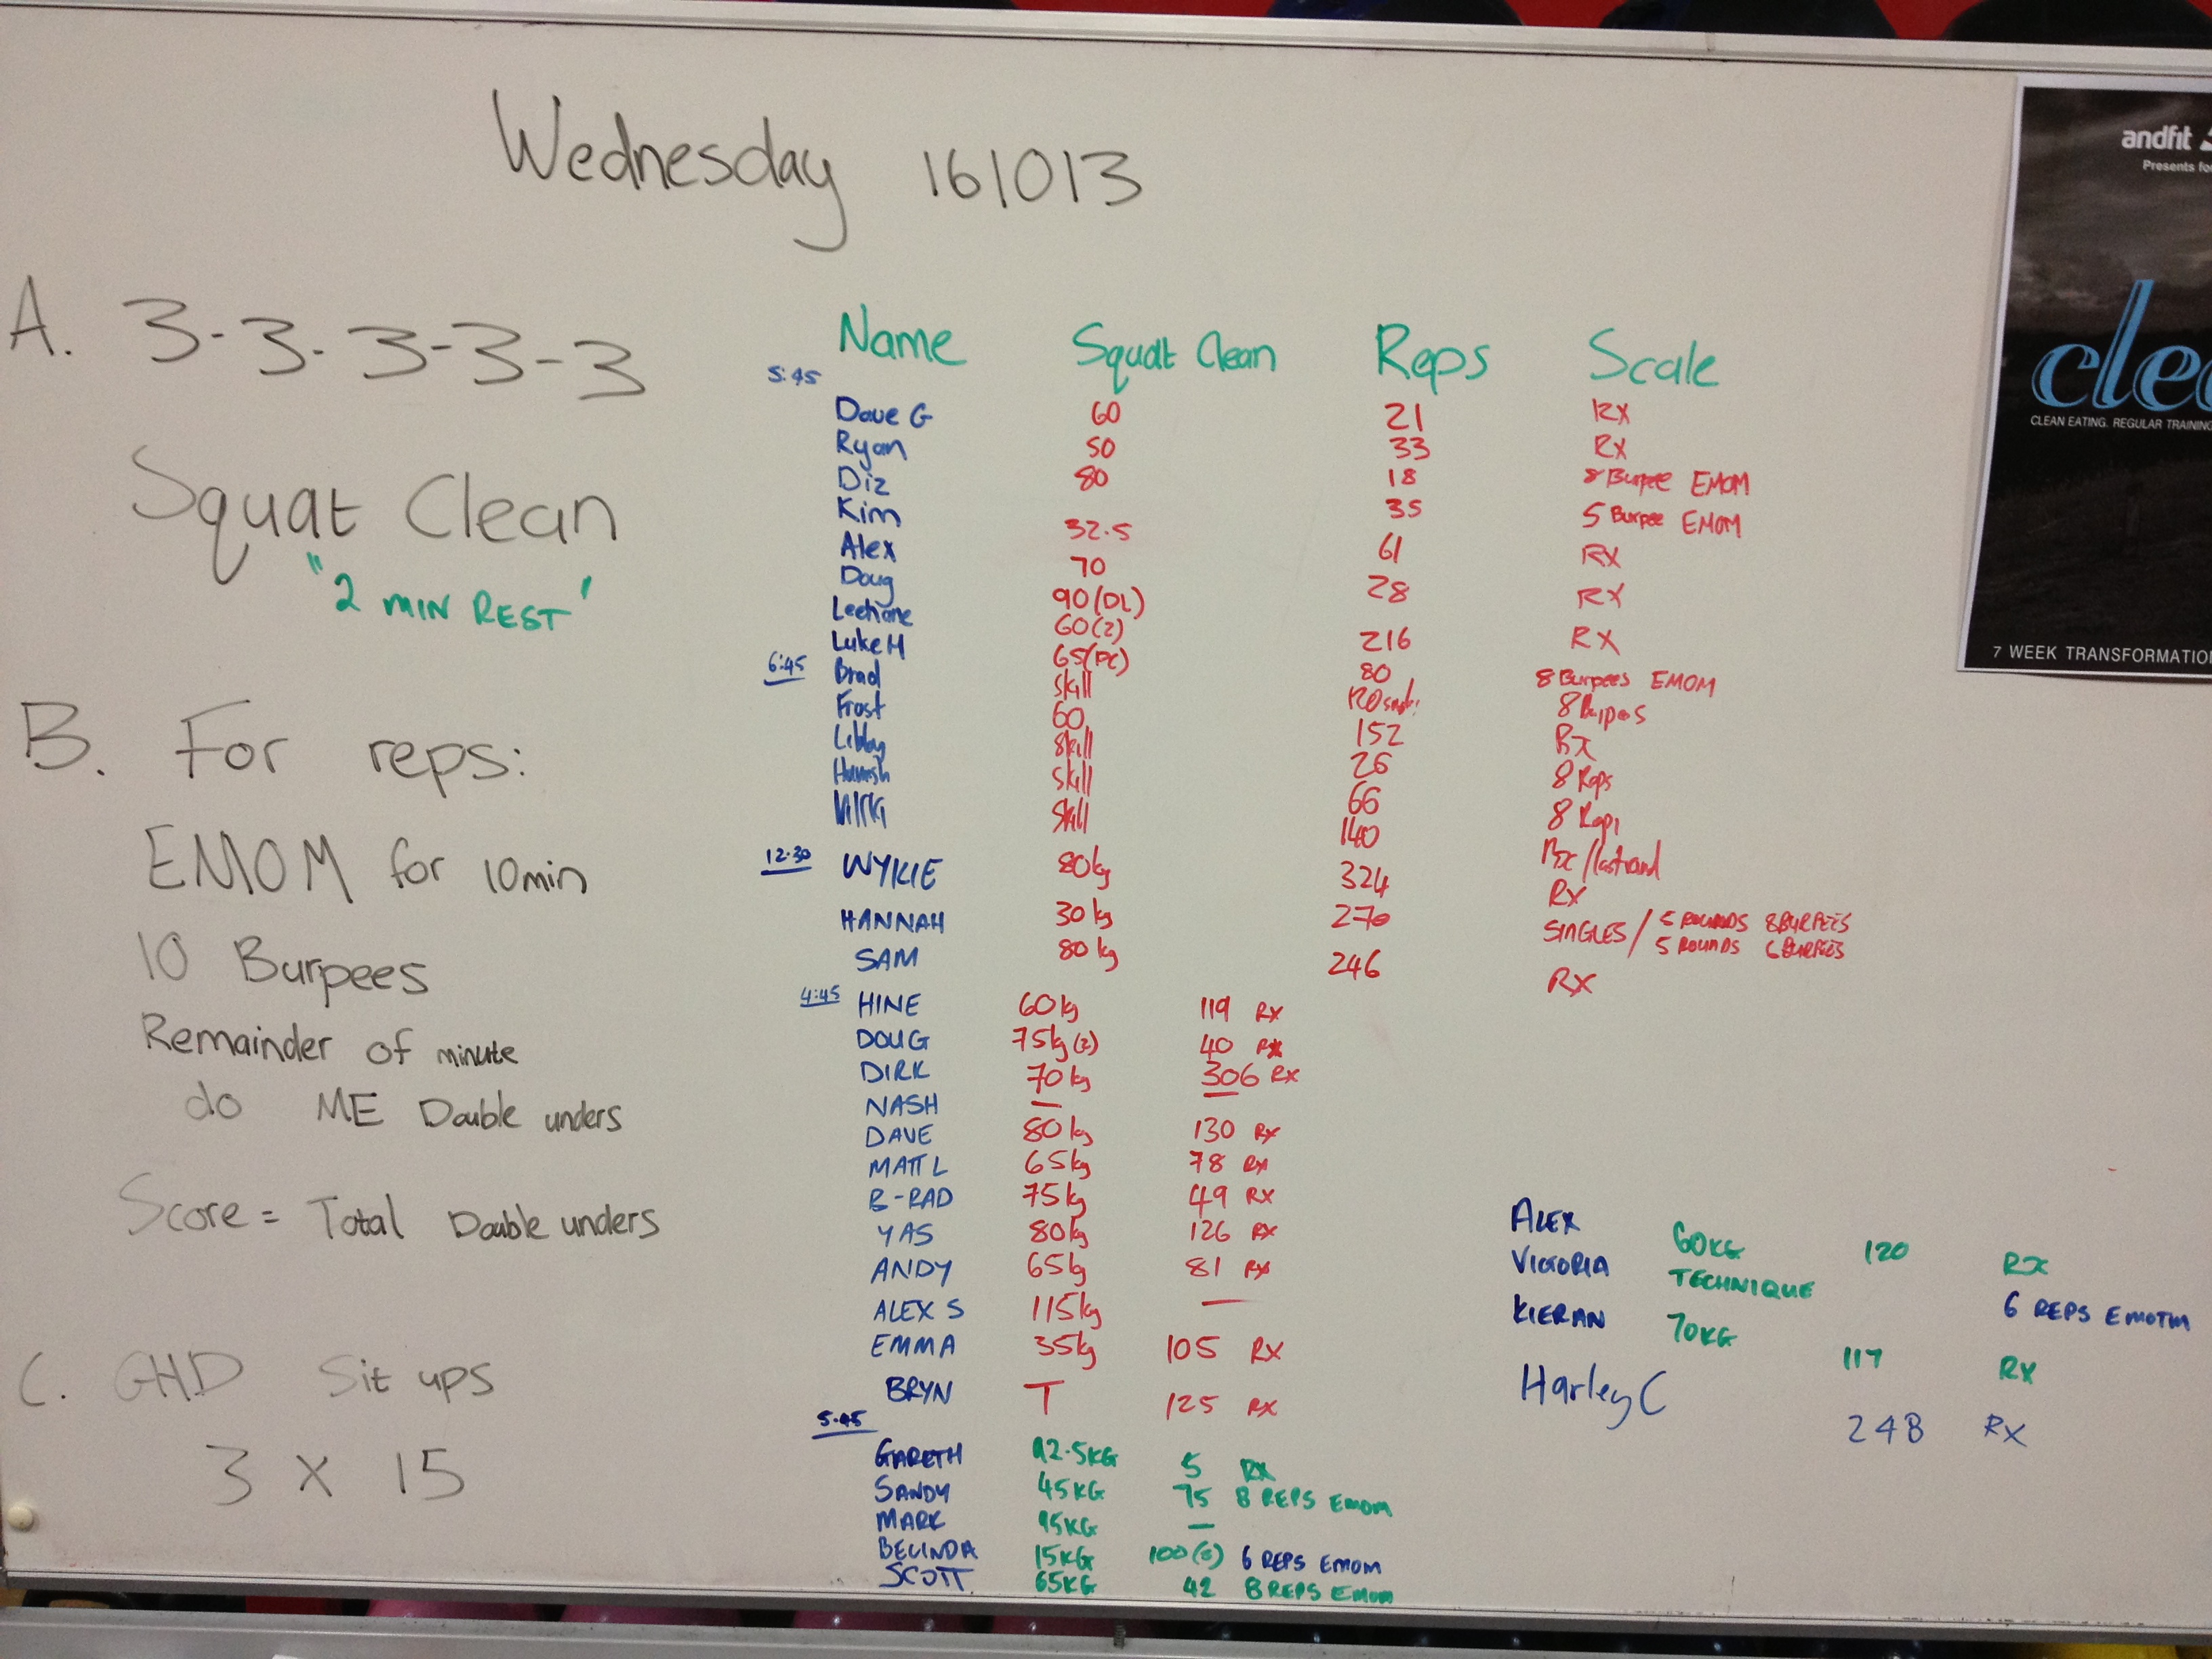 Wednesday 161013
A. 3-3-3-3-3
Squat Clean
"2 MIN REST"
B. For reps:
EMOM for 10min
10 Burpees
Remainder of minute
do ME Double unders
Score = Total Double unders
C. GHD Sit ups
3 x 15
Name Squat Clean Reps Scale
5:45
Dave G 60 21 RX
Ryan 50 33 RX
Diz 80 18 8 Burpee EMOM
Kim 32.5 35 5 Burpee EMOM
Alex 70 61 RX
Doug 90(DL) 28 RX
60(2)
Luke M 65(PC) 216 RX
6:45
Brad skill 80 8 Burpees EMOM
Frost 60 8 Burpees
Libby skill 152 Rx
Hamish skill 26 8 Reps
skill 66 8 Reps
140
12.30
WYKIE 80kg 324 RX
HANNAH 30kg 270 SINGLES / 5 ROUNDS 8 BURPEES
5 ROUNDS 6 BURPEES
SAM 80kg 246 RX
4:45
HINE 60kg 119 RX
DOUG 75kg(2) 40 RX
DIRK 70kg 306 RX
NASH —
DAVE 80kg 130 RX
MATT L 65kg 78 RX
B-RAD 75kg 49 RX
YAS 80kg 126 RX
ANDY 65kg 81 RX
ALEX S 115kg —
EMMA 35kg 105 RX
BRYN T 125 RX
5.45
GARETH 92.5KG 5 RX
SANDY 45KG 75 8 REPS EMOM
MARK 95KG —
BELINDA 15KG 100(S) 6 REPS EMOM
SCOTT 65KG 42 8 REPS EMOM
ALEX 60KG 120 RX
VICTORIA TECHNIQUE 6 REPS EMOTM
KIERAN 70KG 117 RX
Harley C 248 RX
andfit
Presents
CLEAN EATING. REGULAR TRAINING
7 WEEK TRANSFORMATION